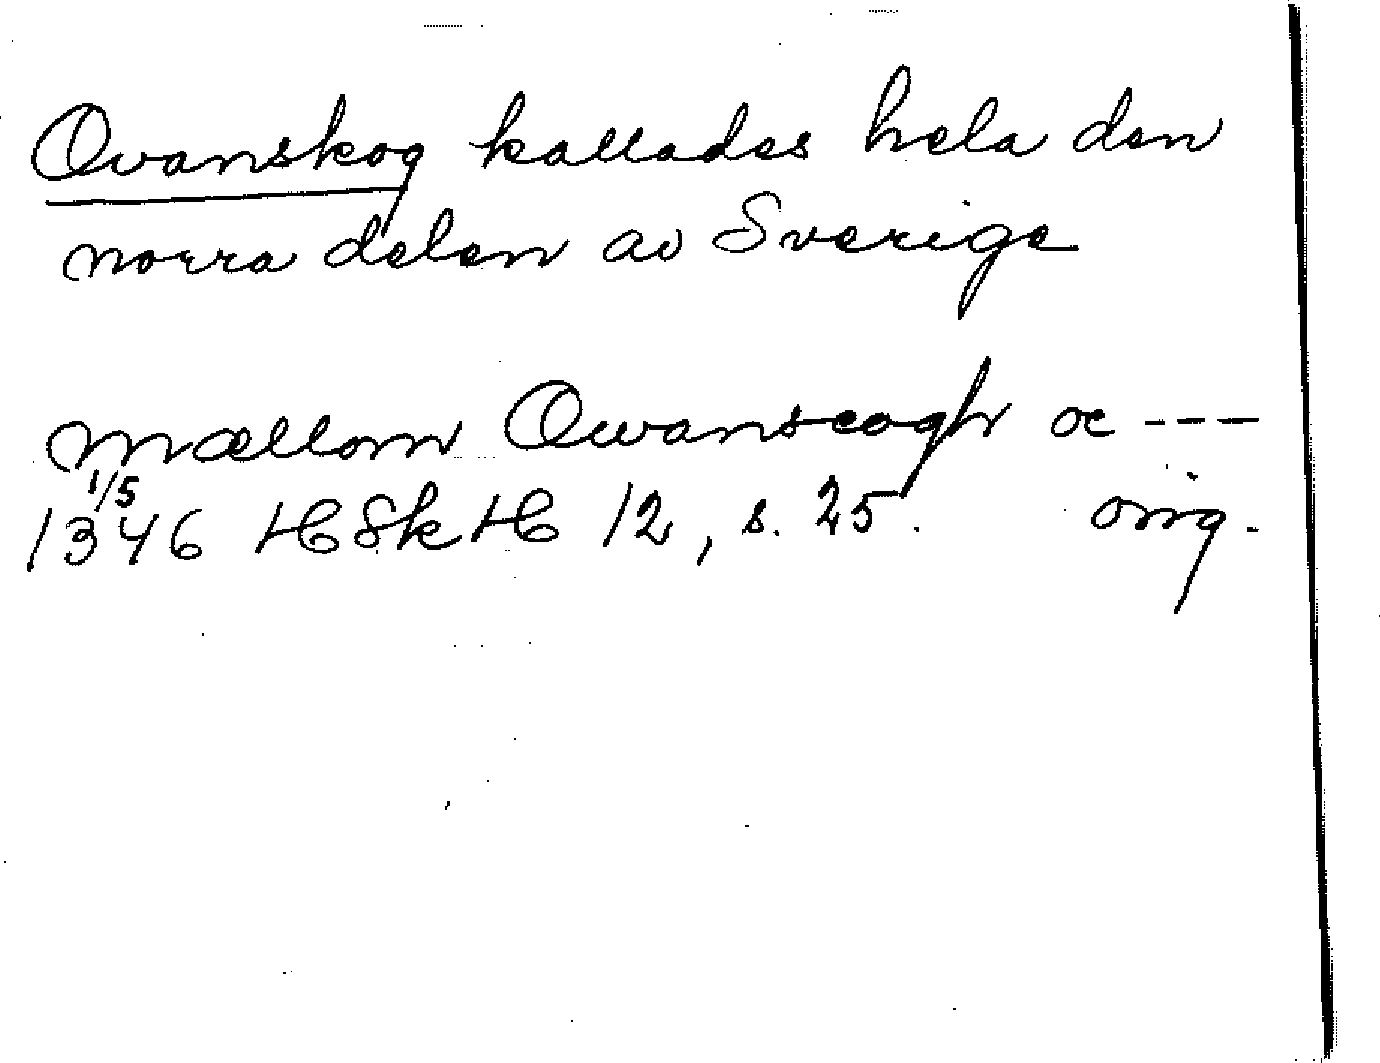 Ovanskog kallades hela den
norra delen av Sverige
mællom Owanscogh oc ---
1/5
1346 HSkH 12, s. 25. orig.